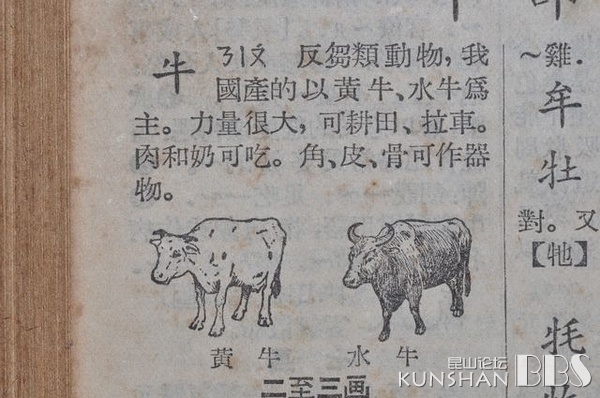 牛 ㄋㄧㄡˊ 反芻類動物,我
國產的以黃牛、水牛爲
主。力量很大,可耕田、拉車。
肉和奶可吃。角、皮、骨可作器
物。
黃牛 水牛
二至三画
~雞.
牟
牡
對。又
【牠】
牦
昆山论坛
KUNSHAN BBS